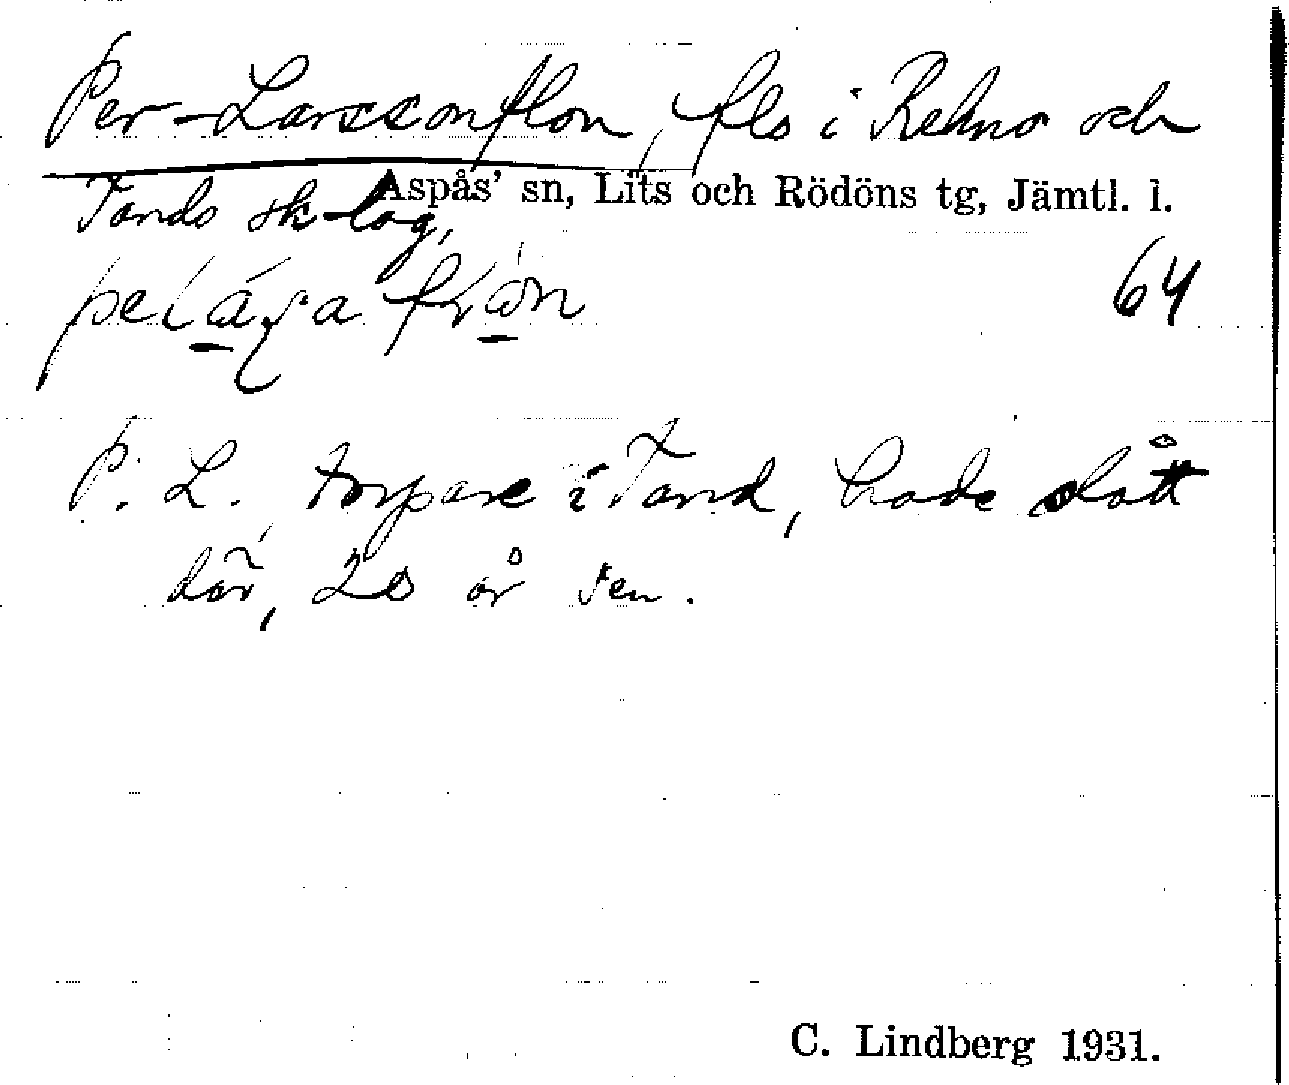 Per-Larssonflon, flo i Rehno och
Aspås' sn, Lits och Rödöns tg, Jämtl. l.
Tands sk-lag,
64
P. L. torpare i Tand, hade slått
där, 20 år sen.
C. Lindberg 1931.